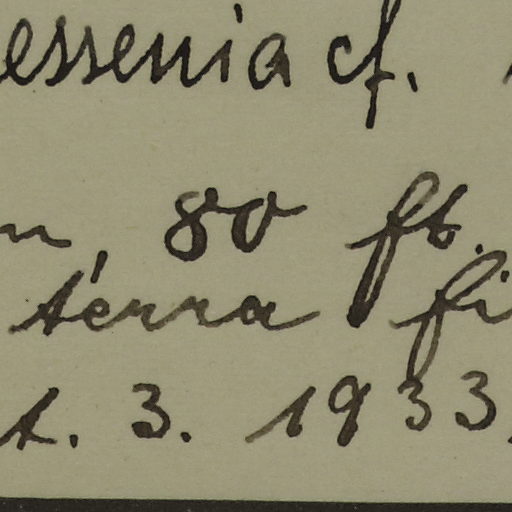 essenia cf.
n, 80 ft.
terra fi
t. 3. 1933.